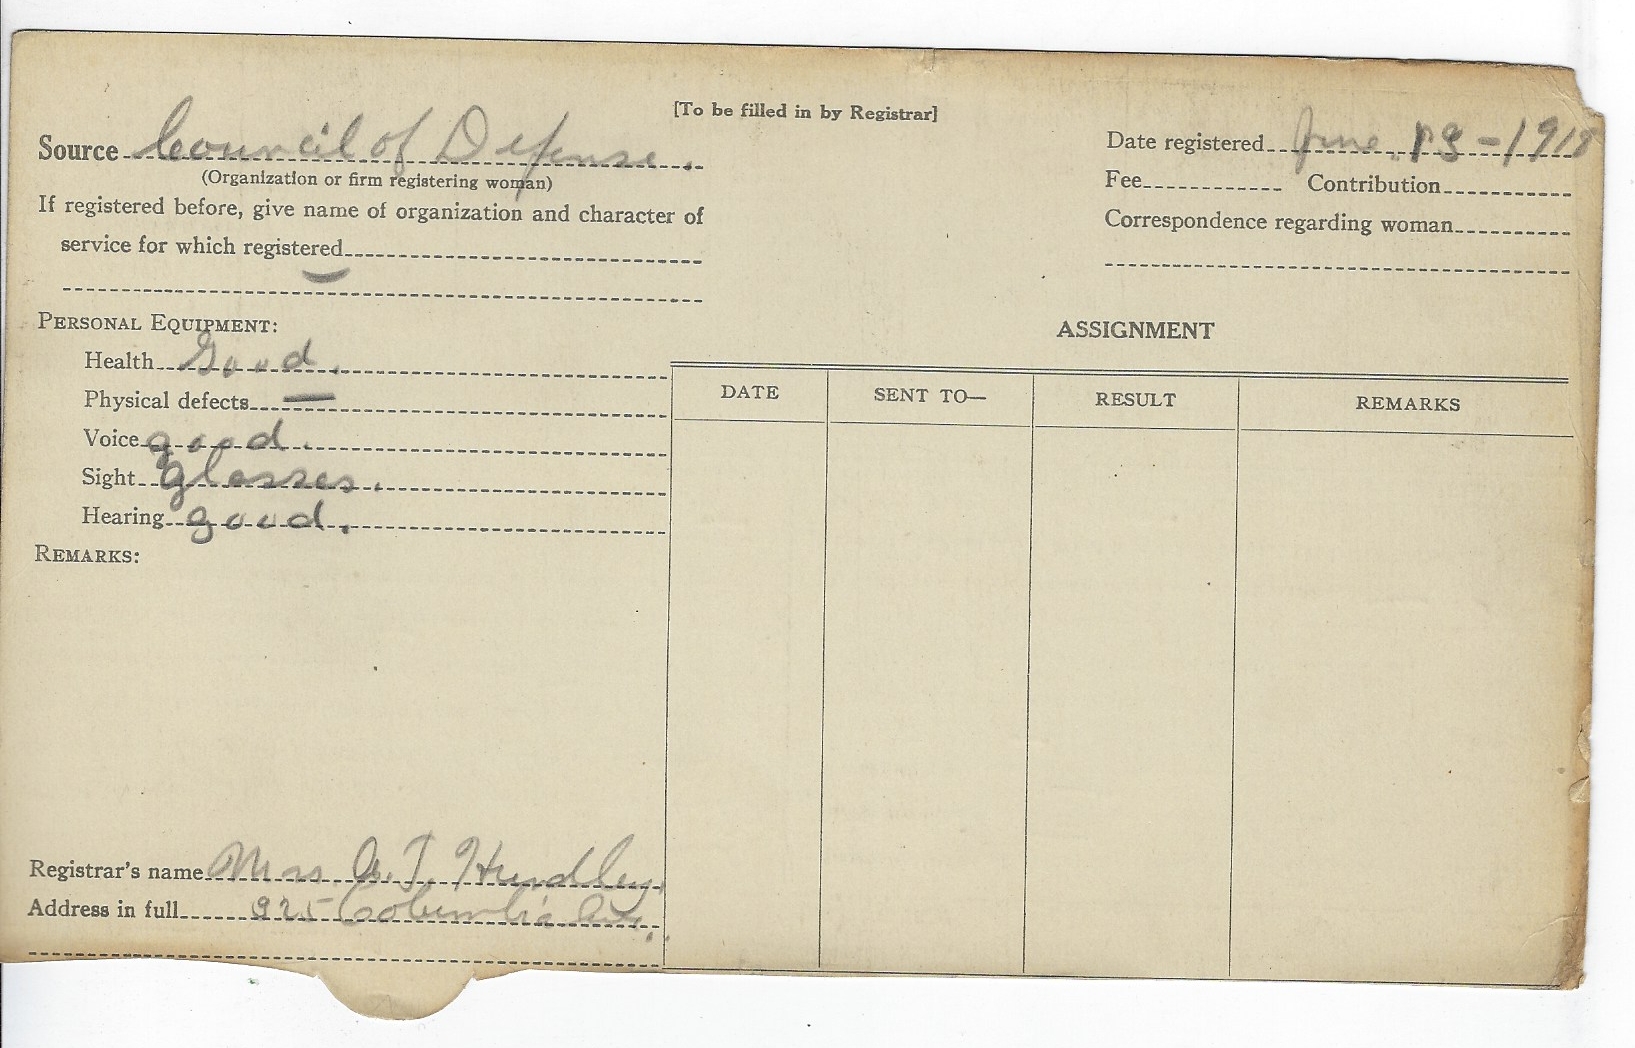 [To be filled in by Registrar]
Source Council of Defense.
(Organization or firm registering woman)
If registered before, give name of organization and character of
service for which registered
—
Date registered June 13 - 1918
Fee Contribution
Correspondence regarding woman
PERSONAL EQUIPMENT:
Health Good.
Physical defects —
Voice good.
Sight glasses.
Hearing good.
REMARKS:
ASSIGNMENT
DATE SENT TO— RESULT REMARKS
Registrar's name Mrs. A. T. Hundley
Address in full 925 Columbia Ave.